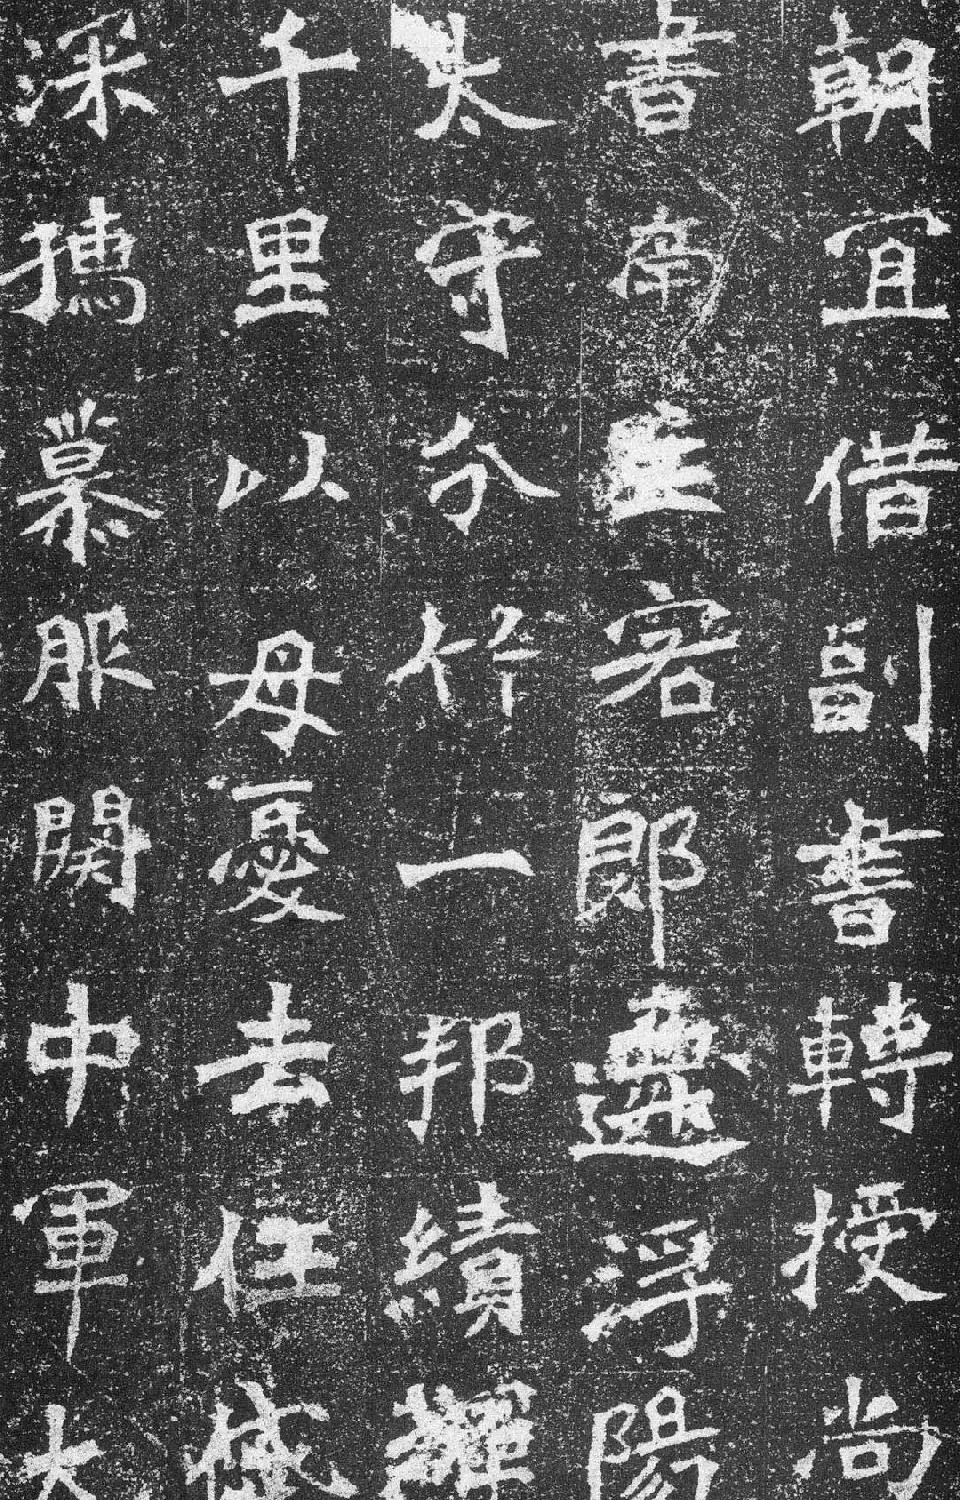 朝宜借副書轉授尚
書南主客郎遷浮陽
太守分竹一邦績輝
千里以母憂去任慽
深孺慕服闋中軍大